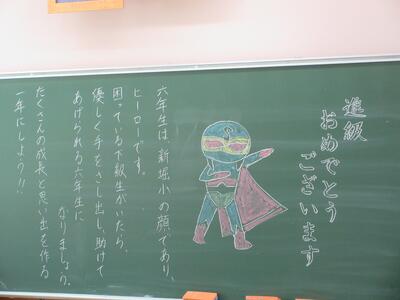 進級
おめでとう
ございます
六年生は新堀小の顔であり、
ヒーローです。
困っている下級生がいたら、
優しく手をさし出し、助けて
あげられる六年生に
なりましょう。
たくさんの成長と思い出を作る
一年にしよう!!